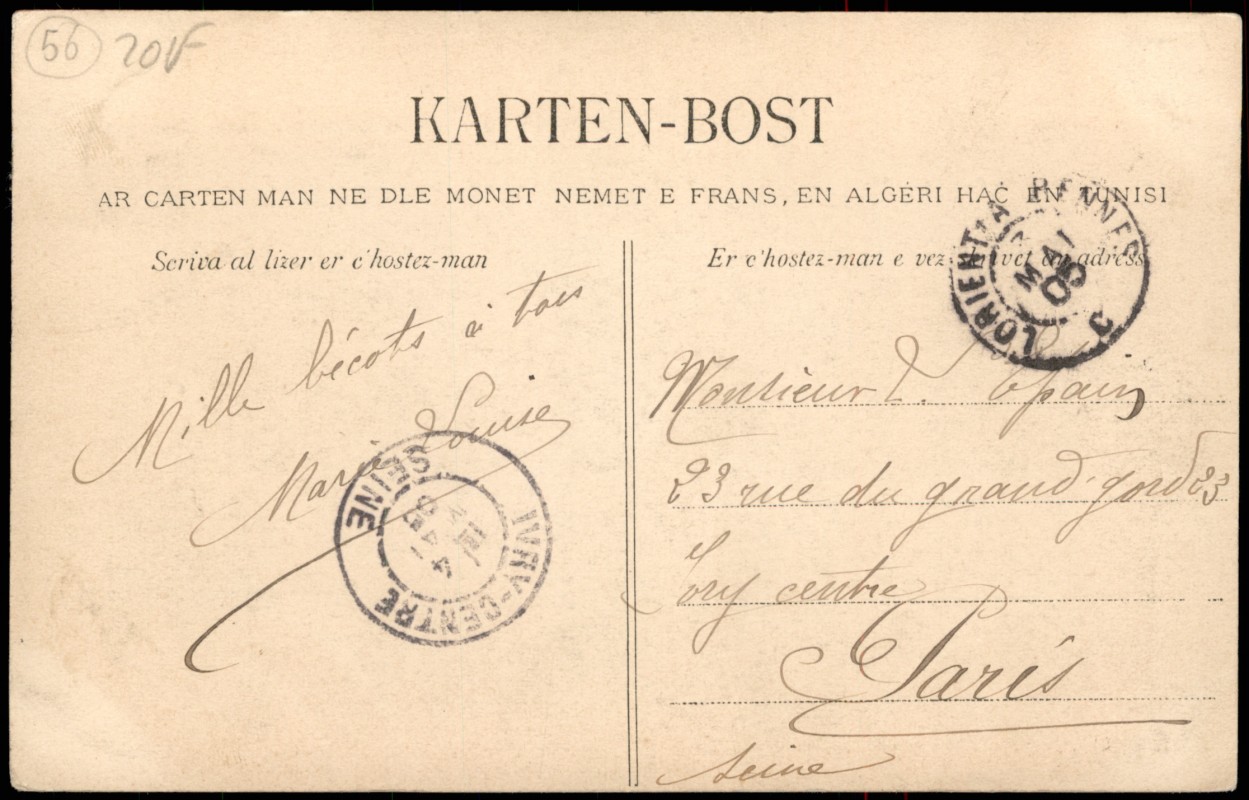 56 20F
KARTEN-BOST
AR CARTEN MAN NE DLE MONET NEMET E FRANS, EN ALGÉRI HAĊ EN TUNISI
Scriva al lizer er c'hostez-man
Er c'hostez-man e vez skrivet an adress
LORIENT A RENNES
MAI
Mille bécots à tous
Marie Louise
IVRY-CENTRE
SEINE
Monsieur L. Lepain
23 rue du grand gord 23
Ivry centre
Paris
Seine